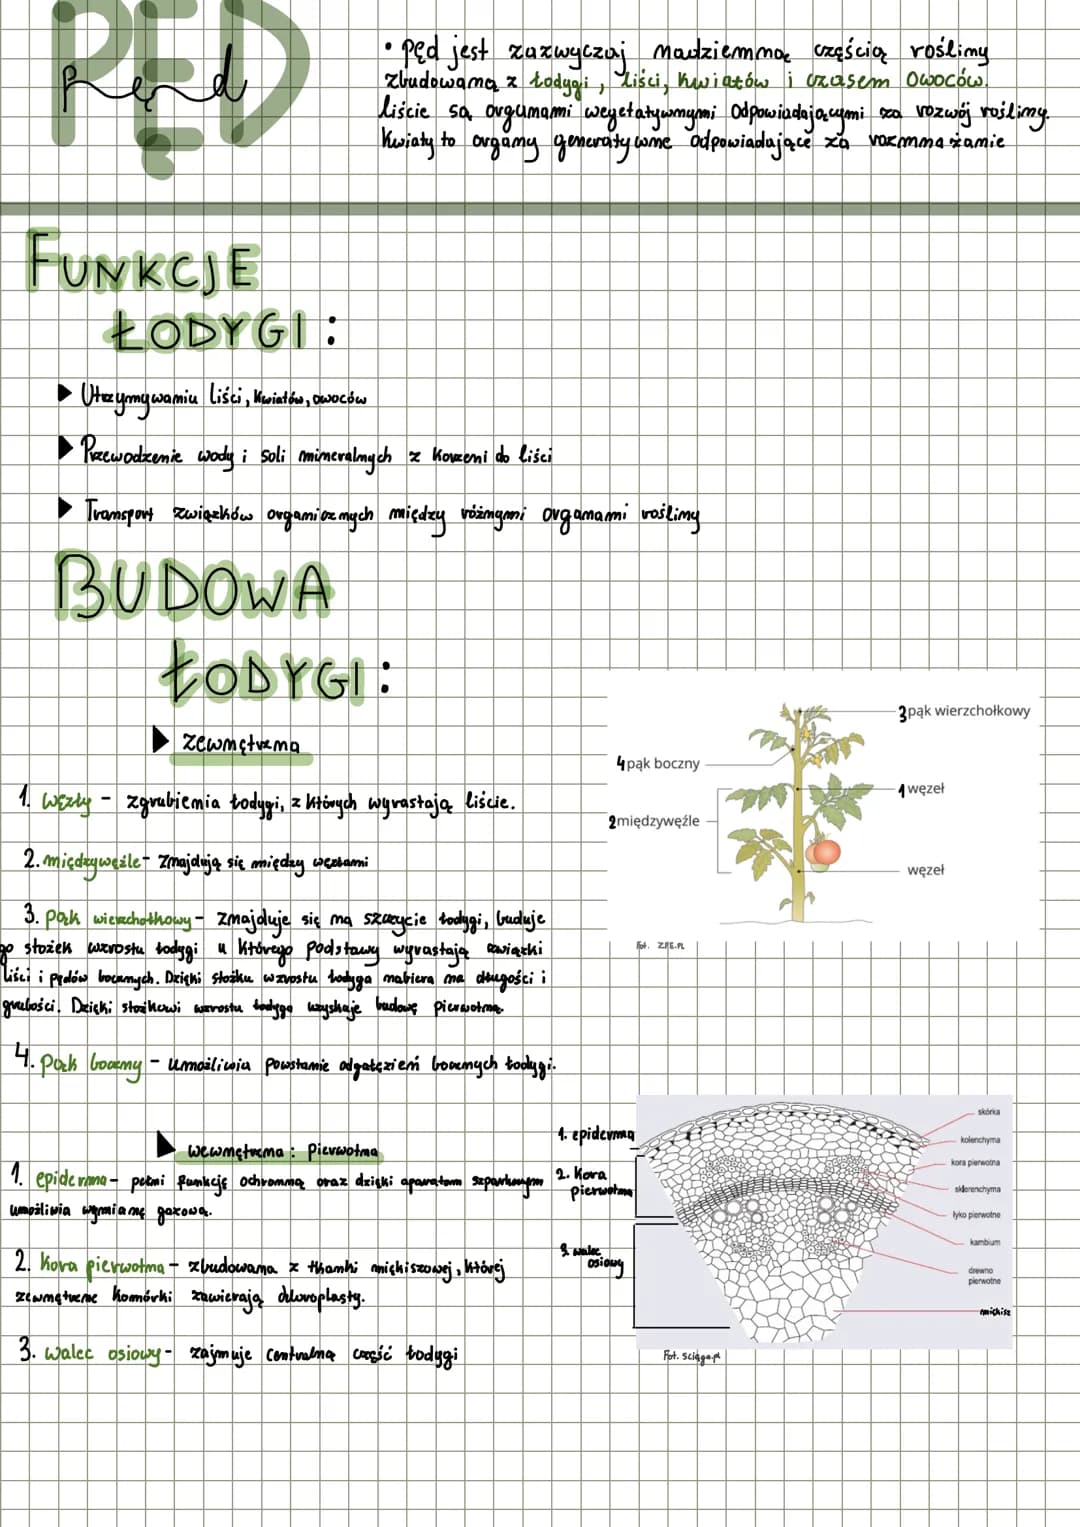 PĘD
Pęd
• Pęd jest zazwyczaj nadziemną częścią rośliny
zbudowaną z łodygi, liści, kwiatów i czasem owoców.
liście są organami wegetatywnymi odpowiadającymi za rozwój rośliny.
Kwiaty to organy generatywne odpowiadające za rozmnażanie
FUNKCJE
ŁODYGI :
▶ Utrzymywaniu liści, kwiatów, owoców
▶ Przewodzenie wody i soli mineralnych z korzeni do liści
▶ Transport związków organicznych między różnymi organami rośliny
BUDOWA
ŁODYGI :
▶ zewnętrzna
1. węzły - zgrubienia łodygi, z których wyrastają liście.
2. międzywęźle - Znajdują się między węzłami
3. pąk wierzchołkowy - znajduje się na szczycie łodygi, buduje
go stożek wzrostu łodygi u którego podstawy wyrastają zwiąski
liści i pędów bocznych. Dzięki stożku wzrostu łodyga nabiera na długości i
grubości. Dzięki stożkowi wzrostu łodyga uzyskuje budowę pierwotną.
4. pąk boczny - umożliwia powstanie odgałęzień bocznych łodygi.
3 pąk wierzchołkowy
4 pąk boczny
1 węzeł
2 międzywęźle
węzeł
Fot. ZPE.PL
▶ wewnętrzna : Pierwotna
1. epiderma - pełni funkcję ochronną oraz dzięki aparatom szparkowym
umożliwia wymianę gazową.
2. Kora pierwotna - zbudowana z tkanki miękiszowej, której
zewnętrzne komórki zawierają chloroplasty.
3. walec osiowy - zajmuje centralną część łodygi
1. epiderma
2. Kora
pierwotna
3. walec
osiowy
skórka
kolenchyma
kora pierwotna
sklerenchyma
łyko pierwotne
kambium
drewno
pierwotne
miękisz
Fot. ściąga.pl